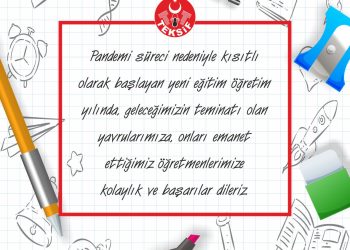 TEKSİF
Pandemi süreci nedeniyle kısıtlı
olarak başlayan yeni eğitim öğretim
yılında, geleceğimizin teminatı olan
yavrularımıza, onları emanet
ettiğimiz öğretmenlerimize
kolaylık ve başarılar dileriz